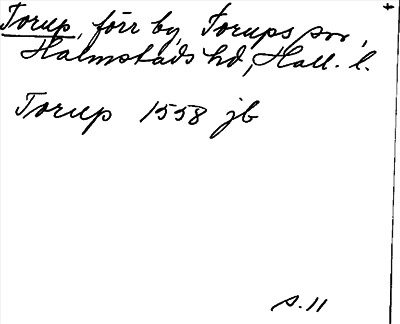 Torup, förr by, Torups sn,
Halmstads hd, Hall. l.
Torup 1558 jb
s. 11